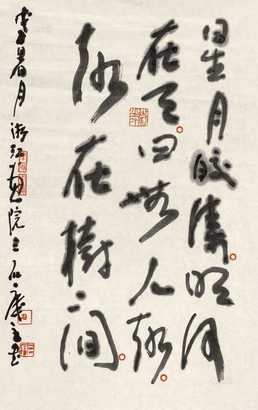 星月皎潔明河
在天四無人聲
聲在樹間
暑月浙江畫院